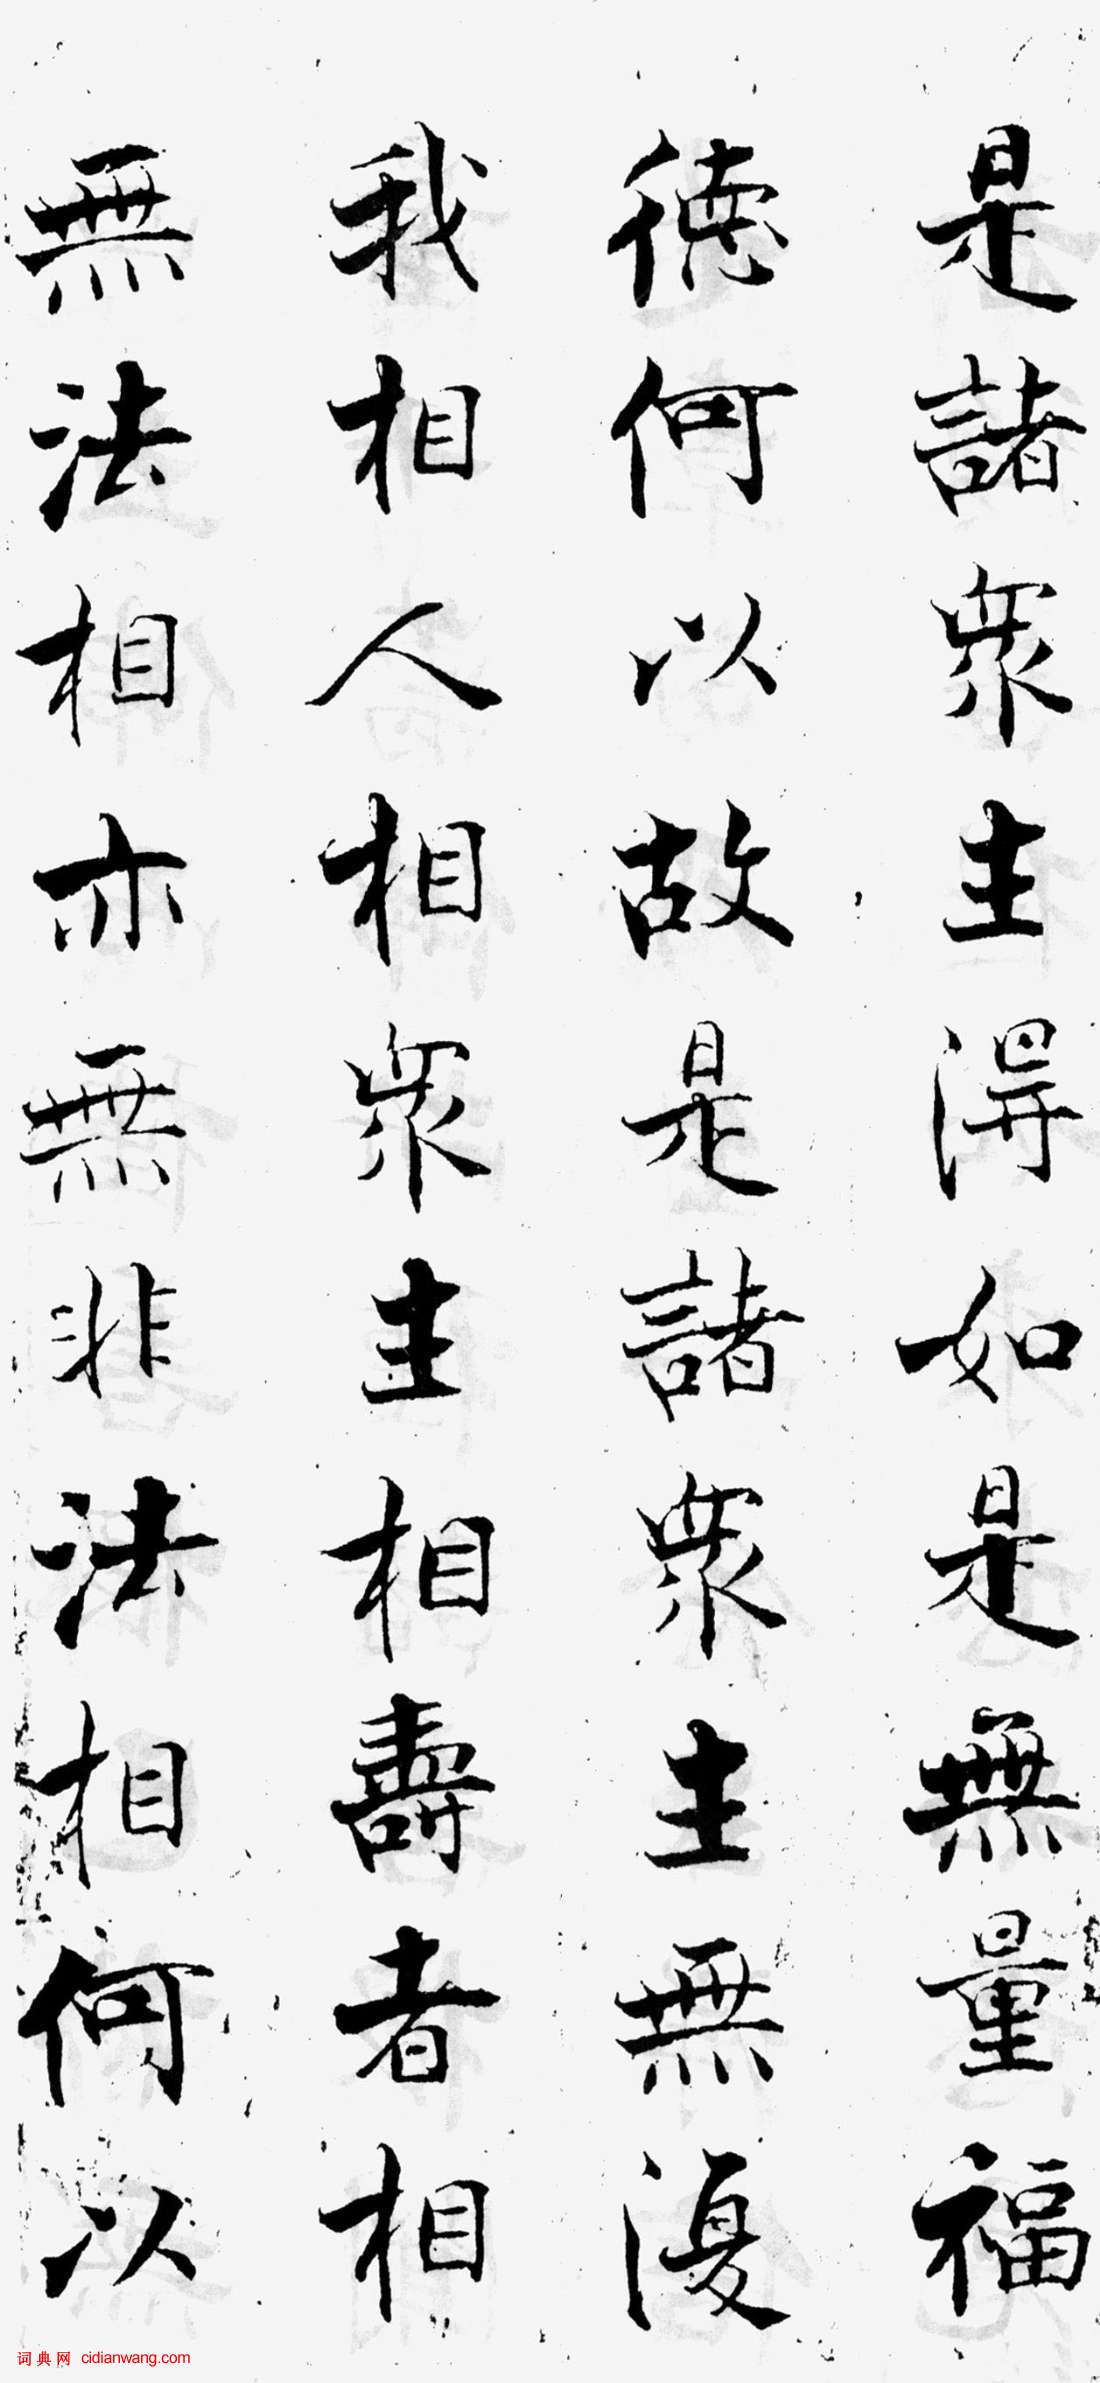 是諸眾生得如是無量福
德何以故是諸眾生無復
我相人相眾生相壽者相
無法相亦無非法相何以
词典网 cidianwang.com